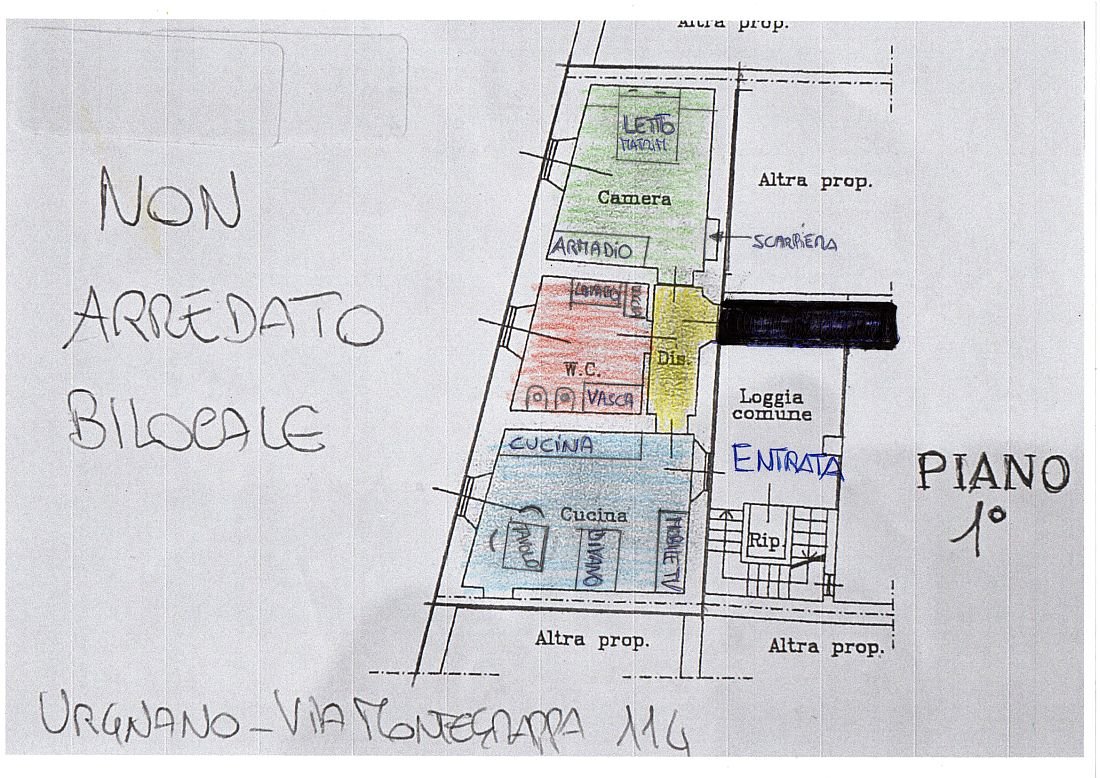 Altra prop.
LETTO
MATRIM
NON
Altra prop.
Camera
SCARPIERA
ARMADIO
ARREDATO
W.C.
Dis.
VASCA
Loggia
comune
BILOCALE
CUCINA
ENTRATA
PIANO
1°
Cucina
TAVOLO
DIVANO
MOBILE TV
Rip.
Altra prop.
Altra prop.
URGNANO - VIA MONTEGRAPPA 114